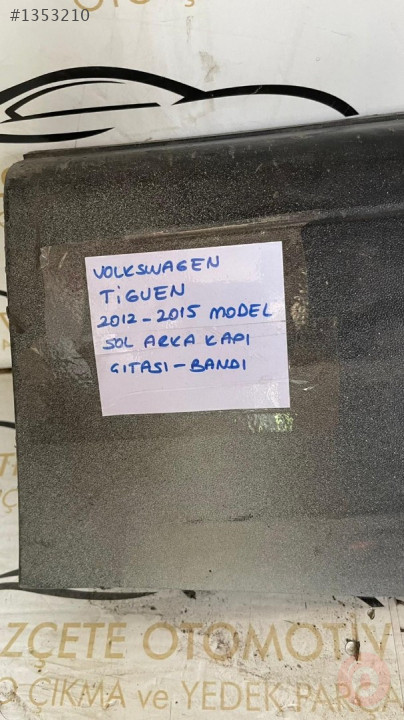 #1353210
OTO
VOLKSWAGEN
TİGUEN
2012-2015 MODEL
SOL ARKA KAPI
GITASI-BANDI
ZÇETE OTOMOTİV
ÇIKMA ve YEDEK PARÇA